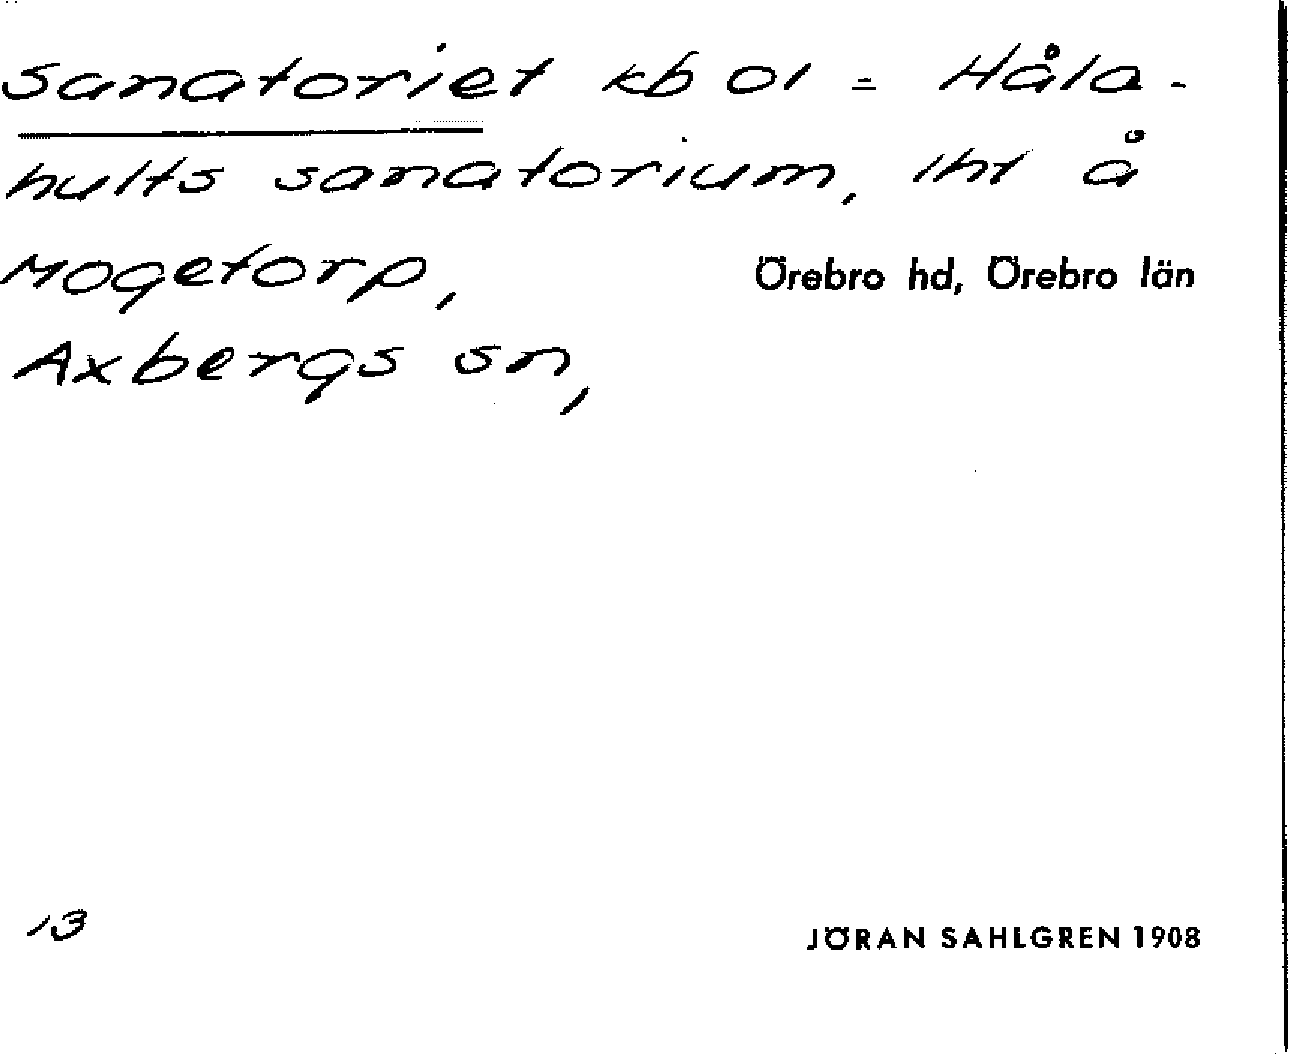 Sanatoriet kb ol = Håla-
hults sanatorium, lht å
Mogetorp, Örebro hd, Örebro län
Axbergs sn,
13 JÖRAN SAHLGREN 1908